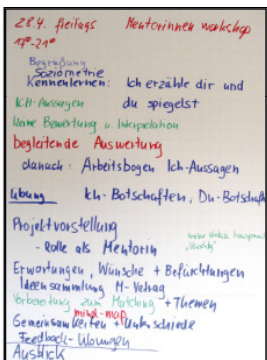 28.4. freitags Mentorinnen workshop
17⁰⁰-21⁰⁰
Begrüßung
Soziometrie
Kennenlernen: Ich erzähle dir und
du spiegelst
Ich-Aussagen
keine Bewertung u. Interpretation
begleitende Auswertung
danach: Arbeitsbogen Ich-Aussagen
Übung Ich-Botschaften, Du-Botschaft
Projektvorstellung
- Rolle als Mentorin
Erwartungen, Wünsche + Befürchtungen
Ideensammlung M-Vertrag
Vorbereitung zum Matching + Themen
mind-map
Gemeinsamkeiten + Unterschiede
Feedback-Übungen
Ausblick